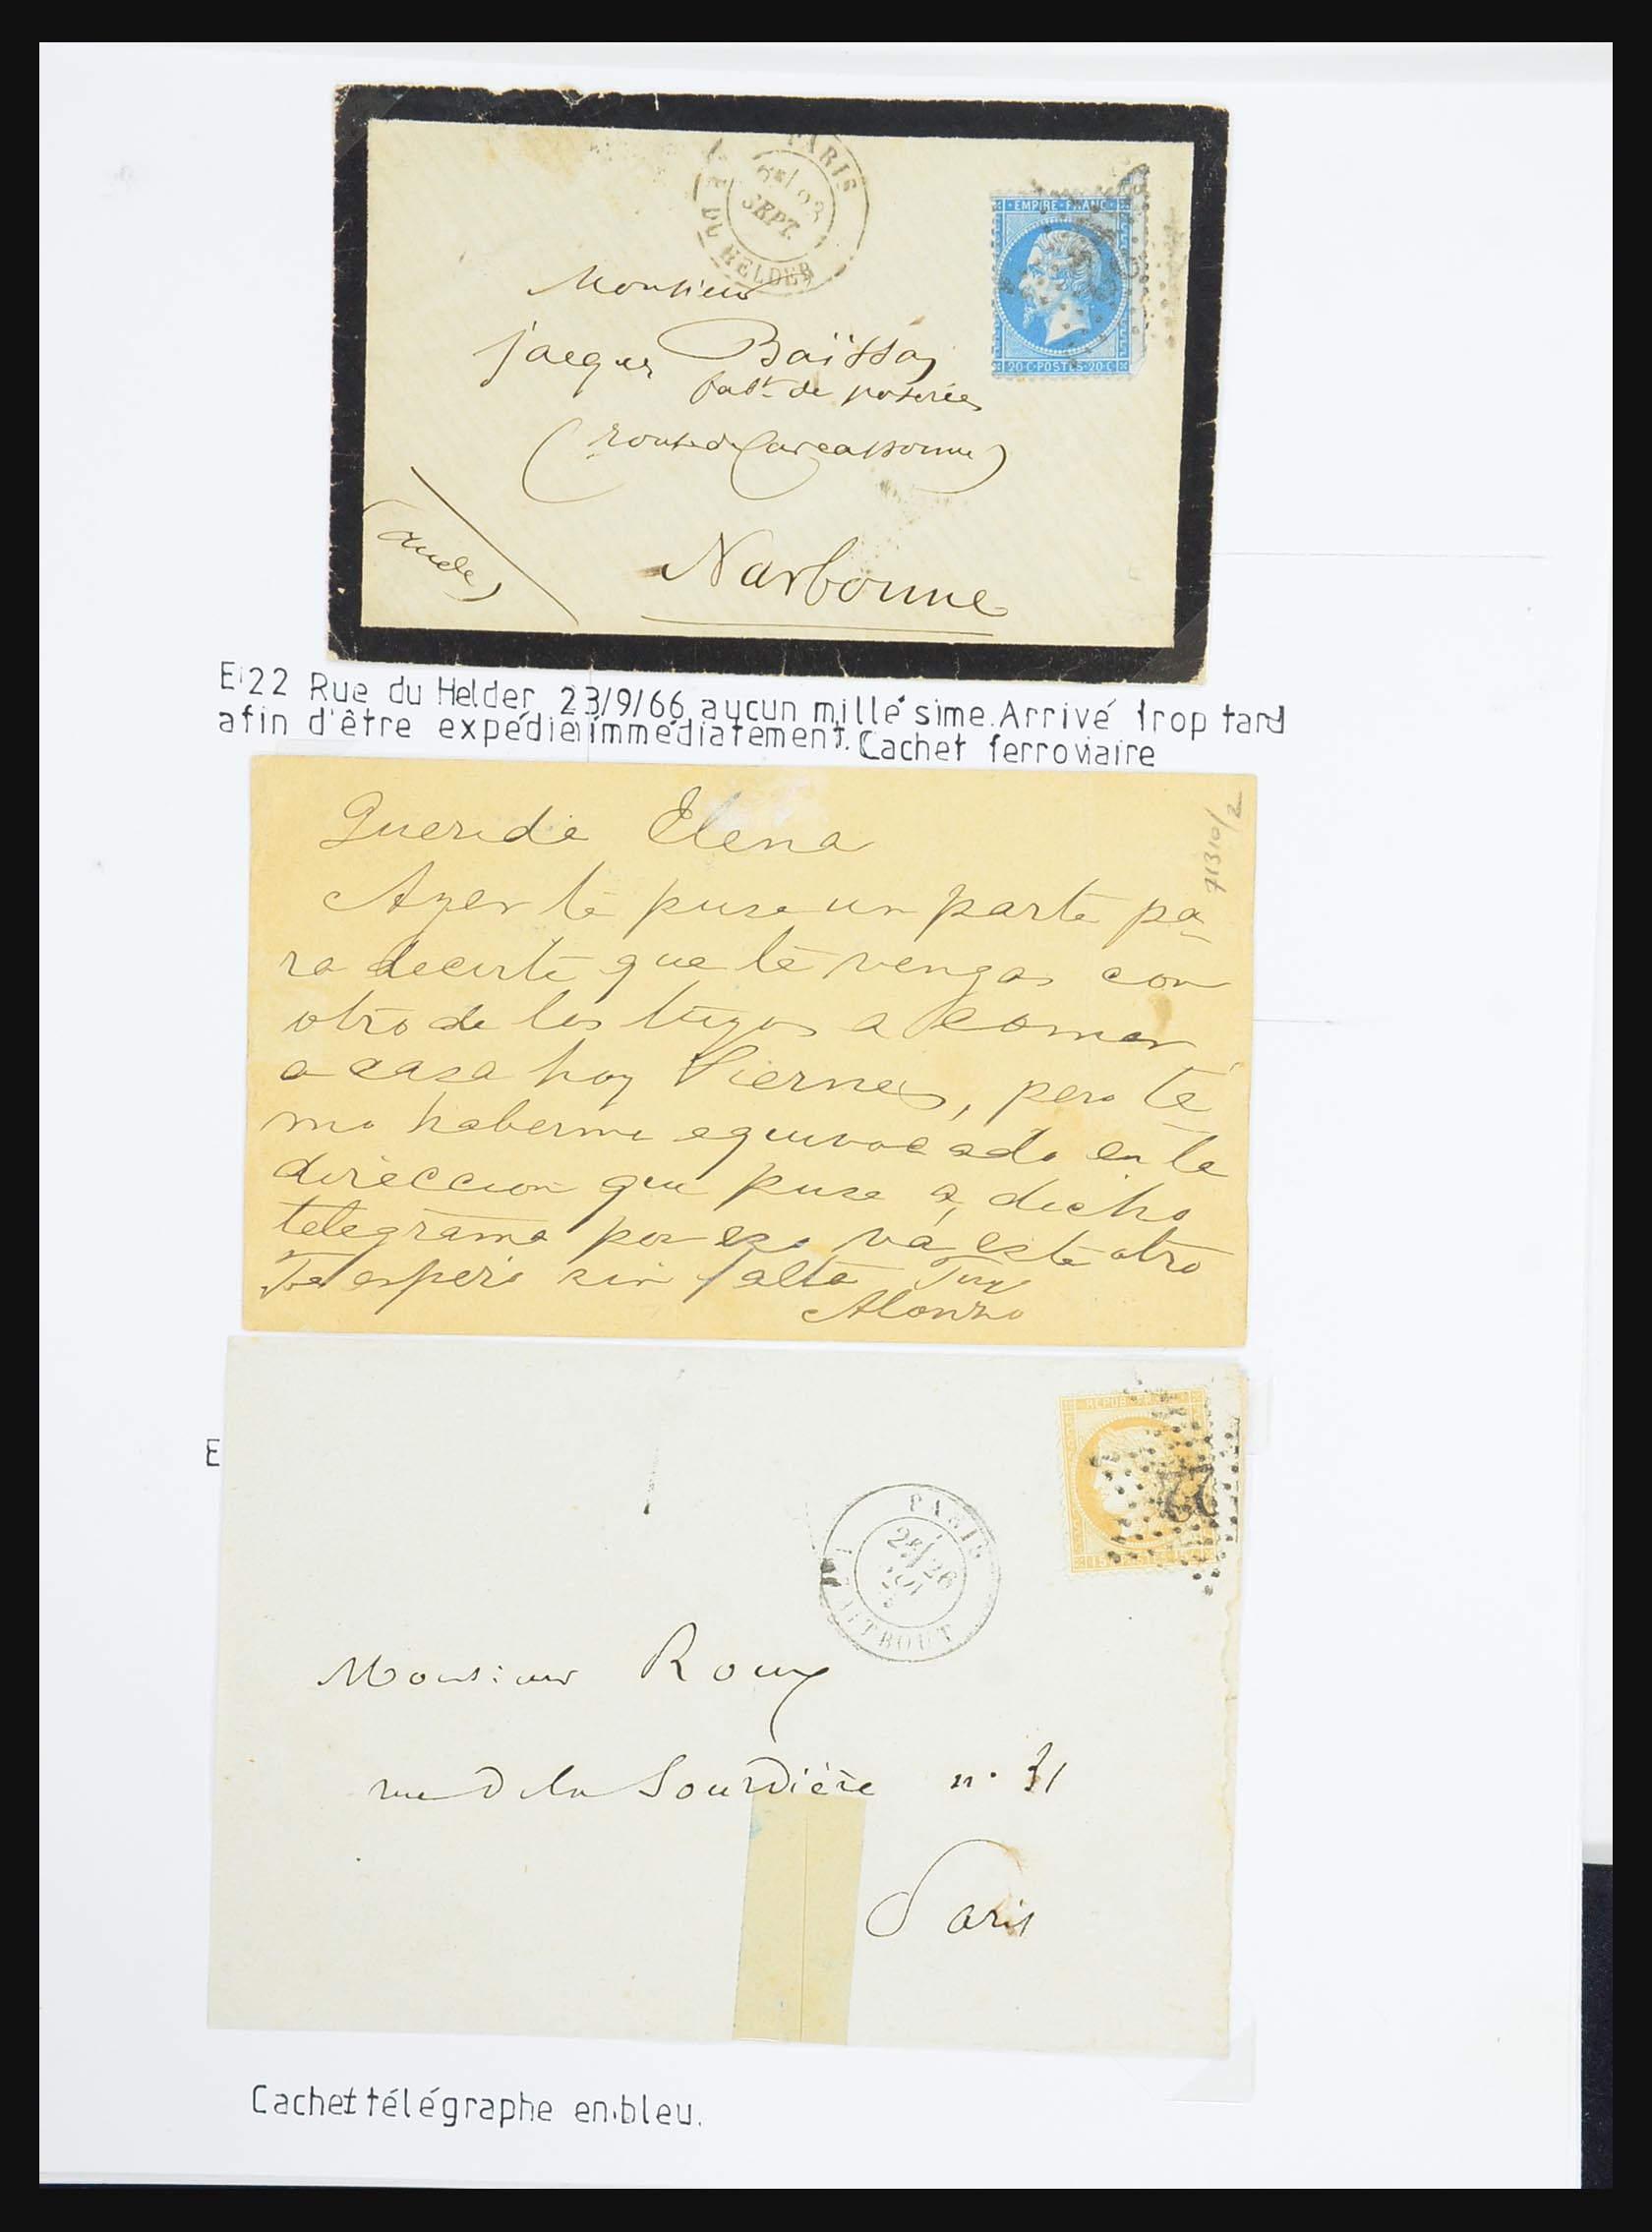 PARIS
6E/ 23
SEPT.
R. DU HELDER
EMPIRE FRANC
20 C POSTES 20 C
Monsieur
jacques Baïssas
fabt de poteries
(route de Carcassonne)
(aude)
Narbonne
E 22 Rue du Helder 23/9/66 aucun millésime. Arrivé trop tard
afin d'être expédié immédiatement. Cachet ferroviaire
71310/2
Querida Elena
Ayer te puse un parte pa-
ra decirte que te vengas con
otro de los tuyos a comer
a casa hoy Viernes, pero te
mo haberme equivocado en la
direccion que puse a dicho
telegrama por eso va este otro
Te espero sin falta Tuyo
Alonzo
E
REPUB FRANC
15 C POSTES 15 C
22
PARIS
2E/ 26
TAITBOUT
Monsieur Roux
rue De la Sourdière n° 31
Paris
Cachet télégraphe en bleu.